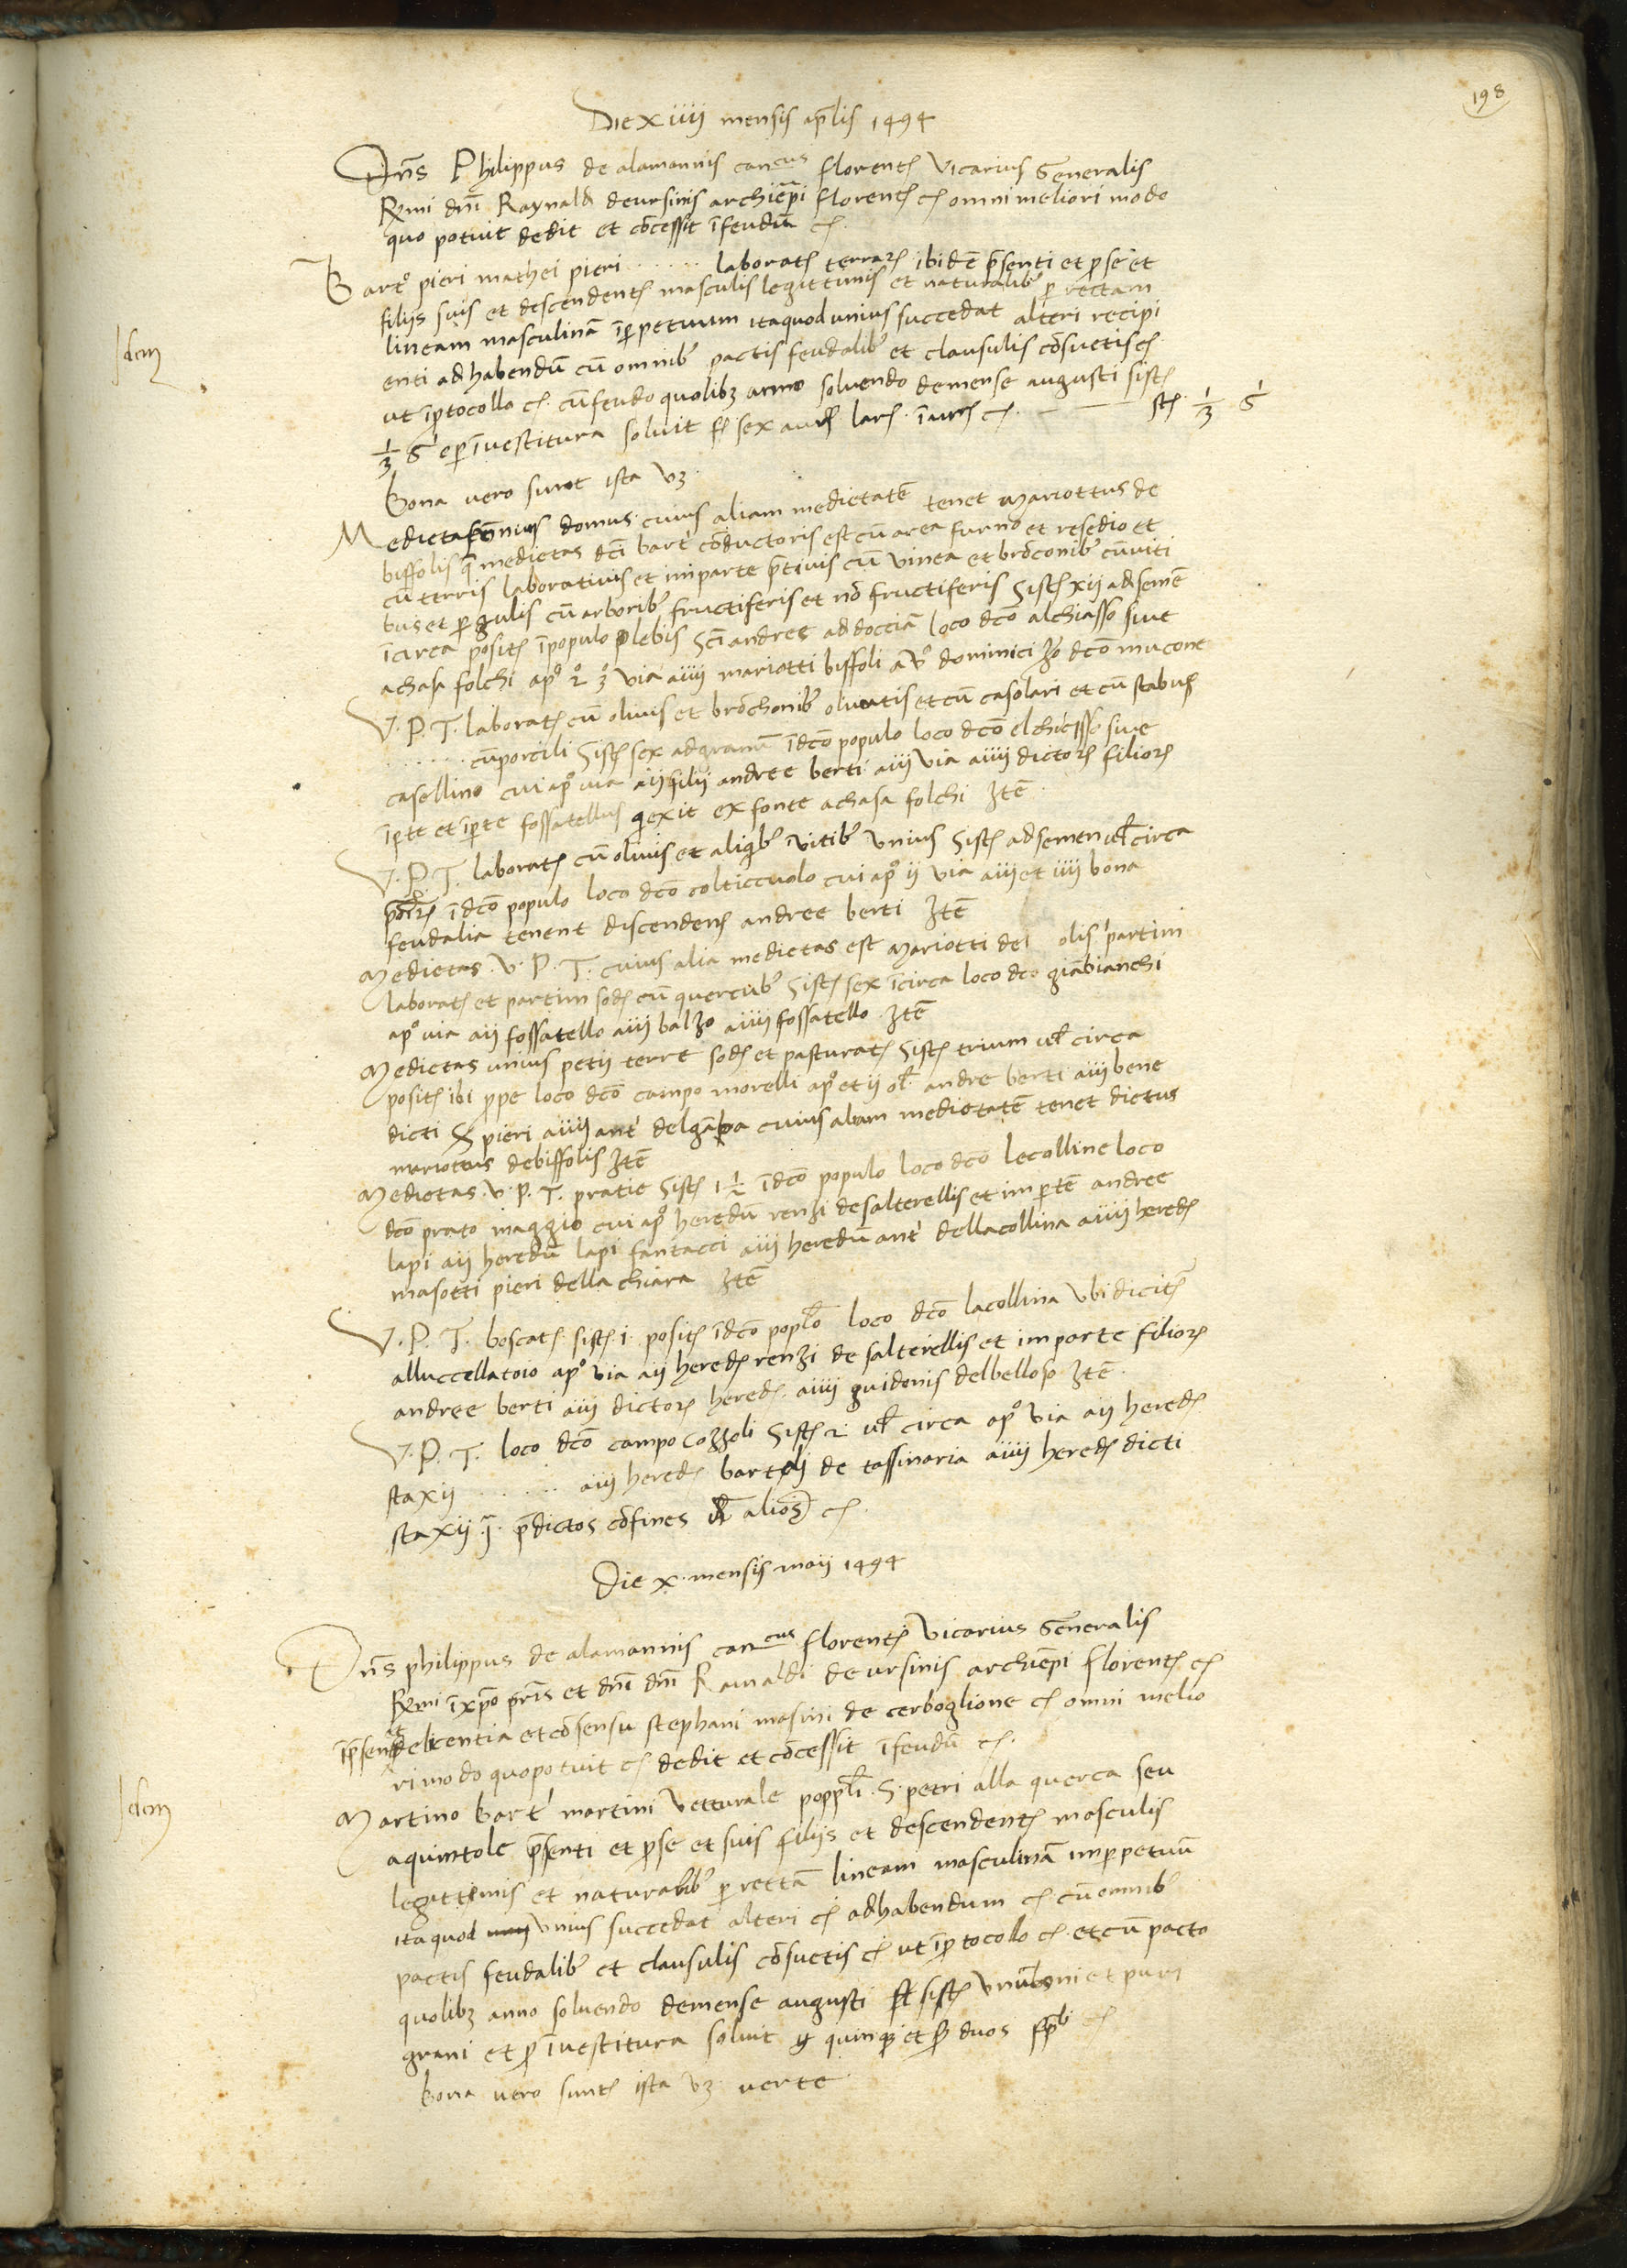 198
Die xiiii mensis aplis 1494
Dns Philippus de alamannis can cus florent Vicarius Generalis
Rmi dni Raynald de ursinis archiepi florent c omni meliori modo
quo potuit dedit et cocessit i feudu c
Barto pieri mathei pieri ...... laborat terrar ibide psenti et p se et
filiis suis et descendent masculis legittimis et naturalib p rectam
Idem
lineam masculina i ppetuum ita quod unius succedat alteri recipi
enti ad habendu cu omnib pactis feudalib et clausulis cosuetis c
ut i ptocollo c. cu feudo quolibz anno solvendo de mense augusti sist
1/3 G e p ivestitura solvit fl sex lar. c. — — st 1/3 G
Bona vero sunt ista vz
Medietas domus cuius aliam medietate tenet Mariottus de
biffolis q medietas dci bart coductoris est cu area furno et resedio et
cu terris laborativis et im parte ptivis cu vinea et broconib cu viti
bus et pgulis cu arborib fructiferis et no fructiferis Sist xii ad seme
i circa posit i populo plebis Sci andree ad doccia loco dco alchiasso sive
achasa folchi apo 2o 3o via aiiii mariotti biffoli a vo dominici dco mucone
V. P. T. laborat cu olivis et brochonib olivatis et cu casolari et cu stabul
...... cu porcili Sist sex ad granu i dco populo loco dco elchiasso sive
casellino cui apo via aii filii andree berti aiii via aiiii dictor filior
i pte et i pte fossatellus q exit ex fonte achasa folchi Ite
V. P. T. laborat cu olivis et aliqib vitib unius Sist ad semen vl circa
i dco populo loco dco colticcuolo cui apo ii via aiii et iiii bona
feudalia tenent discendent andree berti Ite
Medietas. V. P. T. cuius alia medietas est Mariotti de olis partim
laborat et partim sod cu quercub Sist sex i circa loco dco giabianchi
apo via aii fossatello aiii balzo aiiii fossatello Ite
Medietas unius petii terre sod et pasturat Sist trium vl circa
posit ibi ppe loco dco campo morelli apo et ii ol andre berti aiii bene
dicti S pieri aiiii ant cuius aliam medietate tenet dictus
mariottus de biffolis Ite
Medietas. V. P. T. pratie Sist 1 1/2 i dco populo loco dco le colline loco
dco prato maggio cui apo heredu renzi de salterellis et im pte andree
lapi aii heredu lapi fantacci aiii heredu ant della collina aiiii hered
masotti pieri della chiara Ite
V. P. T. boscat sist i posit i dco poplo loco dco la collina ubi dicit
alluccellatoio apo via aii hered renzi de salterellis et im parte filior
andree berti aiii dictor hered. aiiii guidonis del belloso Ite
V. P. T. loco dco campo cozzoli Sist 2 vl circa apo via aii hered
staxii ...... aiii hered bartoli de tassinaria aiiii hered dicti
staxii. pdictos cofines vl alios c
Die x mensis maii 1494
Dns philippus de alamannis can cus florent Vicarius Generalis
Rmi i xpo pris et dni dni Rainaldi de ursinis archiepi florent c
de licentia et cosensu stephani masini de cerboglione c omni melio
ri modo quo potuit c dedit et cocessit i feudu c.
Idem
Martino bart martini vetturale poppli. S. petri alla querca seu
aquintole psenti et p se et suis filiis et descendent masculis
legittimis et naturalib p retta lineam masculina im ppetuu
ita quod unius succedat alteri c ad habendum c cu omnib
pactis feudalib et clausulis cosuetis c ut i ptocollo c. et cu pacto
quolibz anno solvendo de mense augusti sist unu boni et puri
grani et p ivestitura solvit quinqz et duos c
bona vero sunt ista vz verte